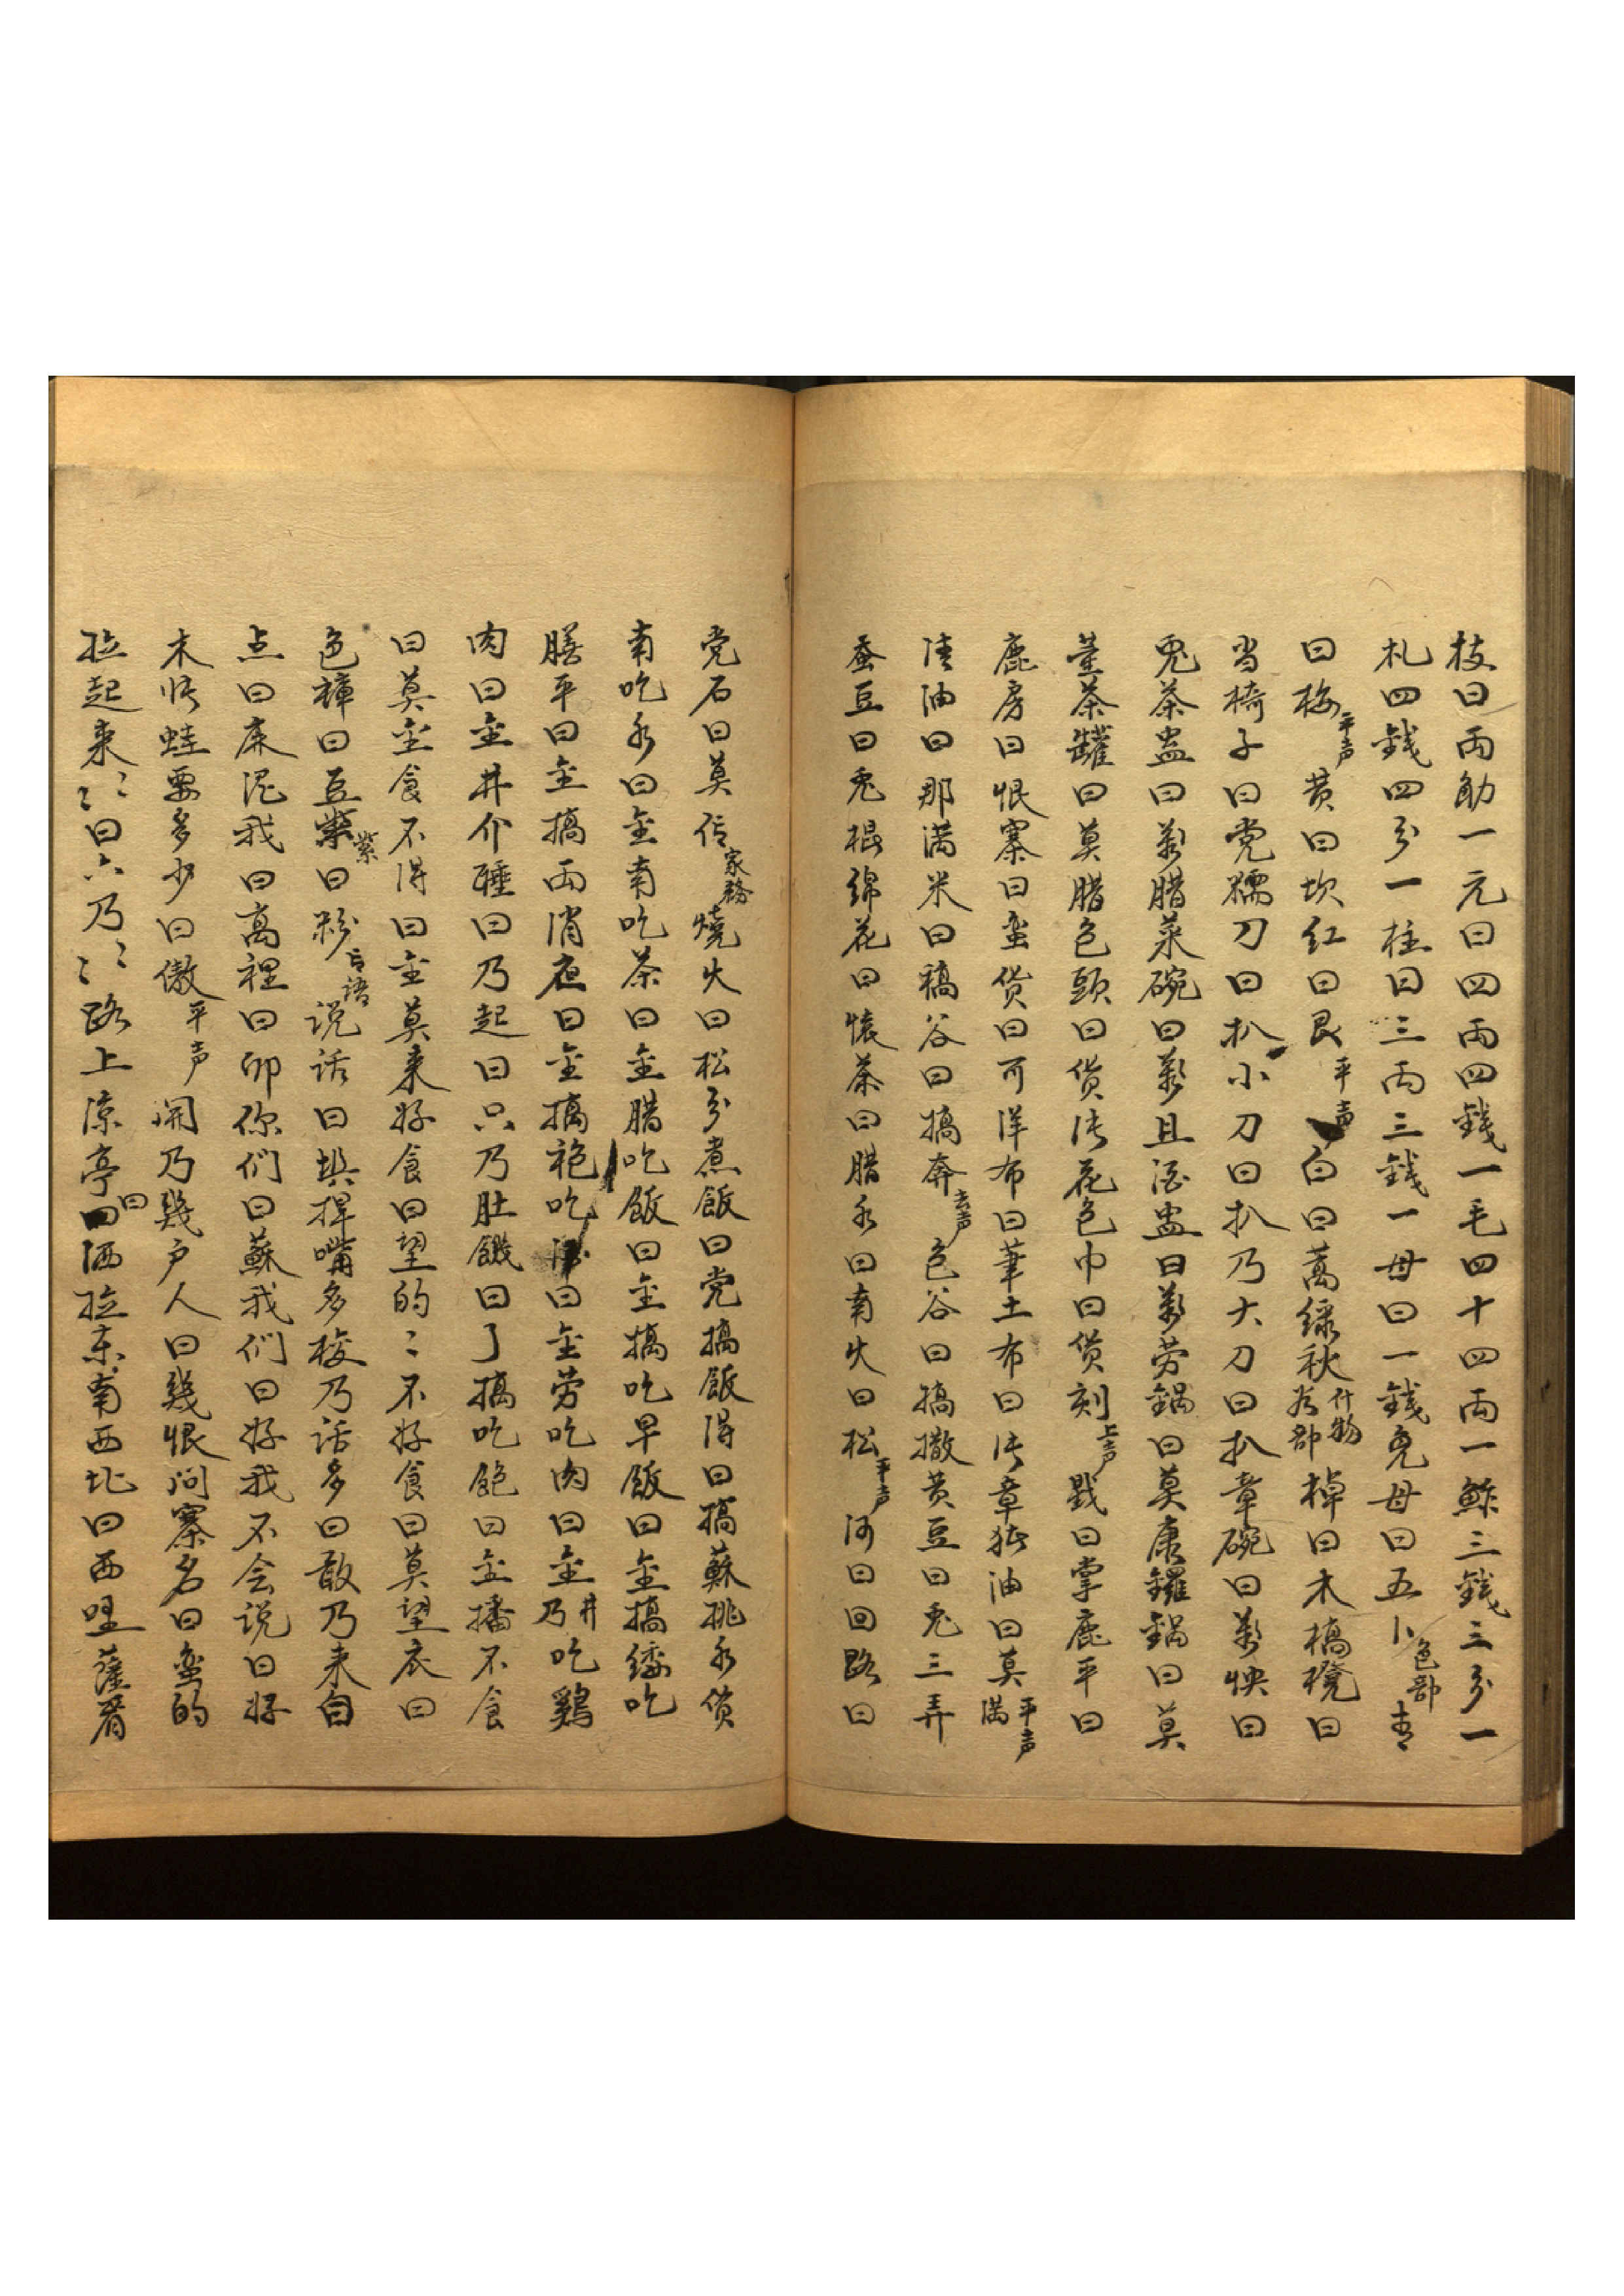 枝曰両觔一元曰四両四錢一毛四十四両一觧三錢三分一
札四錢四分一柱曰三両三錢一母曰一錢免母曰五卜色部青
曰梅平声黄曰坎紅曰艮平声白曰萬綠秋什物為部棹曰木槁櫈曰
当椅子曰党糯刀曰扒小刀曰扒乃大刀曰扒章碗曰萬怏曰
兎茶盅曰萬腊菜碗曰萬且酒盅曰萬劳鍋曰莫康鑼鍋曰莫
董茶罐曰莫腊包頭曰货法花色巾曰货刻上声戥曰掌鹿平曰
鹿房曰恨寨曰蛮货曰可洋布曰董土布曰法章猪油曰莫平声满
清油曰那满米曰稿谷曰搞奔去声色谷曰搞撒黄豆曰兎三弄
蚕豆曰兎棍綿花曰懐茶曰腊水曰南火曰松平声河曰回路曰
党石曰莫信家務燒火曰松分煮飯曰党搞飯得曰搞蘇挑水货
南吃水曰金南吃茶曰金腊吃飯曰金搞吃早飯曰金搞緌吃
膳平曰金搞両消夜曰金搞袍吃曰金劳吃肉曰金井乃吃鷄
肉曰金井介睡曰乃起曰只乃肚餓曰了搞吃飽曰金播不食
曰莫金食不得曰金莫来好食曰望的〻不好食曰莫望衣曰
色褲曰豆紫紫曰粉言語说话曰埧捍嘴多梭乃话多曰敢乃来白
点曰麻泥我曰髙裡曰卯你们曰蘇我们曰好我不会说曰好
木悋蛙要多少曰傲平声闹乃幾户人曰幾恨问寨名曰蛮的
拉起来〻〻曰六乃〻〻路上凉亭曰洒拉东南西北曰西哩薩有